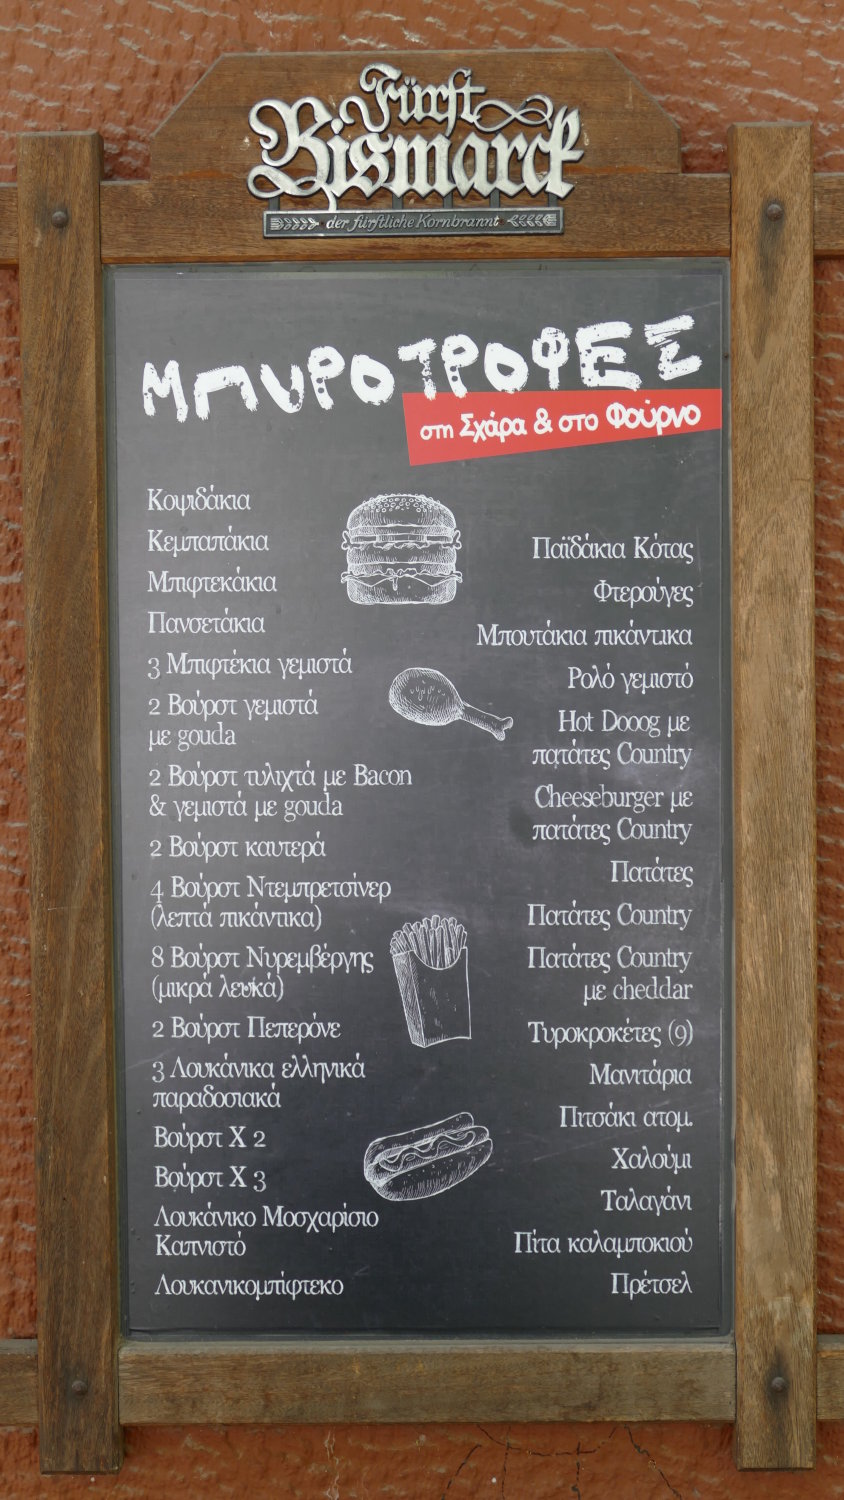 Fürst
Bismarck
der fürstliche Kornbrannt
ΜΠΥΡΟΤΡΟΦΕΣ
στη Σχάρα & στο Φούρνο
Κοψιδάκια
Κεμπαπάκια
Μπιφτεκάκια
Πανσετάκια
3 Μπιφτέκια γεμιστά
2 Βούρστ γεμιστά
με gouda
2 Βούρστ τυλιχτά με Bacon
& γεμιστά με gouda
2 Βούρστ καυτερά
4 Βούρστ Ντεμπρετσίνερ
(λεπτά πικάντικα)
8 Βούρστ Νυρεμβέργης
(μικρά λευκά)
2 Βούρστ Πεπερόνε
3 Λουκάνικα ελληνικά
παραδοσιακά
Βούρστ Χ 2
Βούρστ Χ 3
Λουκάνικο Μοσχαρίσιο
Καπνιστό
Λουκανικομπίφτεκο
Παϊδάκια Κότας
Φτερούγες
Μπουτάκια πικάντικα
Ρολό γεμιστό
Hot Dooog με
πατάτες Country
Cheeseburger με
πατάτες Country
Πατάτες
Πατάτες Country
Πατάτες Country
με cheddar
Τυροκροκέτες (9)
Μανιτάρια
Πιτσάκι ατομ.
Χαλούμι
Ταλαγάνι
Πίτα καλαμποκιού
Πρέτσελ